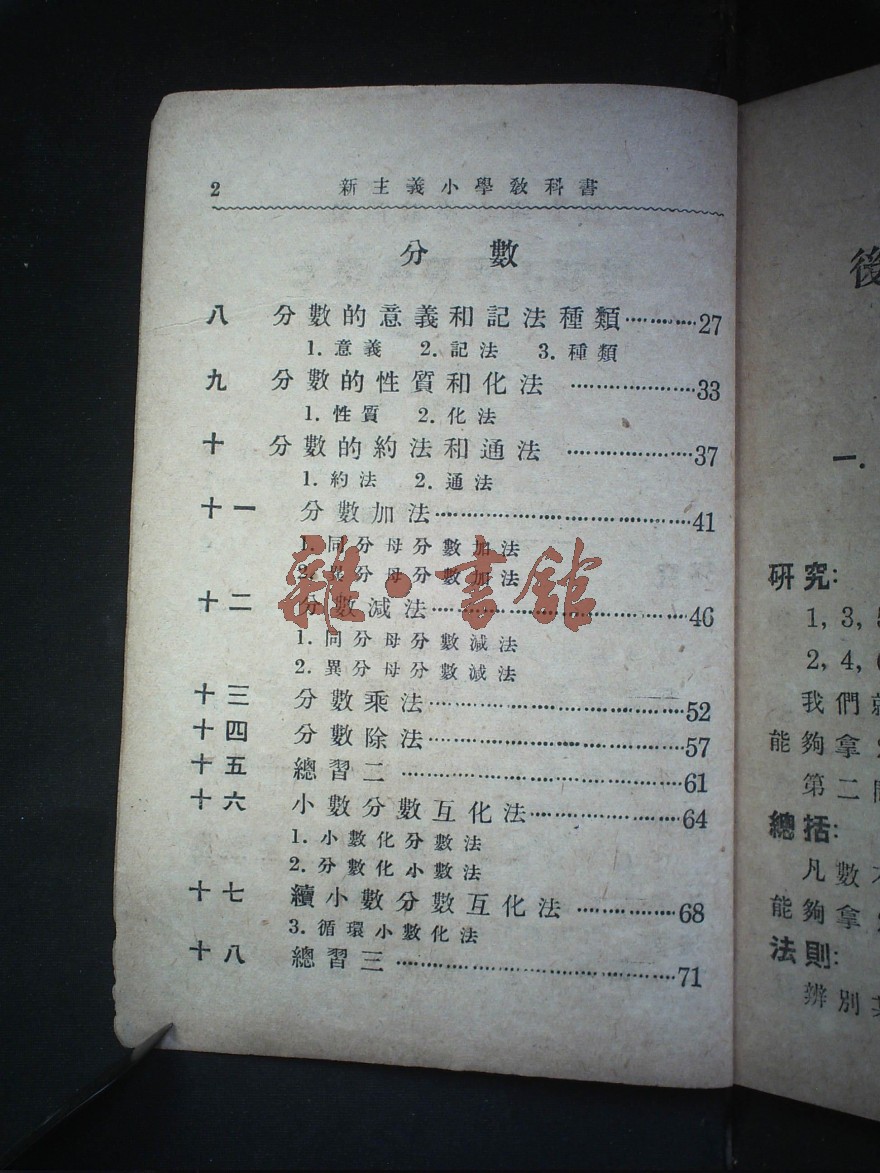 2 新主義小學教科書
分數
八 分數的意義和記法種類…………27
1. 意義 2. 記法 3. 種類
九 分數的性質和化法 …………………33
1. 性質 2. 化法
十 分數的約法和通法 …………………37
1. 約法 2. 通法
十一 分數加法……………………………………41
1. 同分母分數加法
2. 異分母分數加法
十二 分數減法……………………………………46
1. 同分母分數減法
2. 異分母分數減法
十三 分數乘法……………………………………52
十四 分數除法……………………………………57
十五 總習二 ………………………………………61
十六 小數分數互化法……………………64
1. 小數化分數法
2. 分數化小數法
十七 續小數分數互化法 ……………68
3. 循環小數化法
十八 總習三………………………………………71
雜·書館
後
一.
研究:
1, 3,
2, 4,
我們
能夠拿
第二
總括:
凡數
能夠拿
法則:
辨別